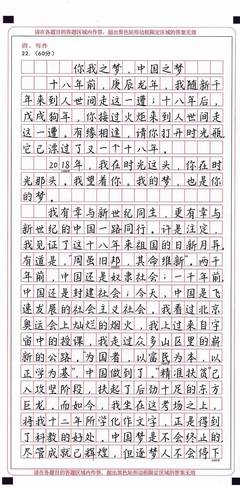 请在各题目的答题区域内作答，超出黑色矩形边框限定区域的答案无效
四、写作
22.（60分）
你我之梦，中国之梦
十八年前，庚辰龙年，我随新千
年来到人世间走这一遭；十八年后，
戊戌狗年，你接过火炬来到人世间走
这一遭，有缘相逢，请你打开时光瓶，
它已漂过了又一个十八年。
2018年，我在时光这头，你在时
光那头，我望着你，我的梦，也是你
的梦。
我有幸与新世纪同生，更有幸与
新世纪的中国一路同行。许是注定，
我见证了这十八年来祖国的日新月异。
有道是，“周虽旧邦，其命维新”，两千
年前，中国还是奴隶社会；一千年前，
中国还是封建社会；今天，中国是飞
速发展的社会主义社会，我看过北京
奥运会上灿烂的烟火，我上过来自宇
宙中的授课，我走过众多山区里的崭
新的公路。“为国者，以富民为本，以
正学为基”，中国做到了，“精准扶贫”已
入攻坚阶段，扶起了后劲十足的东方
巨龙，而如今，我坐在这考场之上，
将我十二年所学化作文字，正是得到
了科教的好处，中国梦是不会终止的，
尽管成就已辉煌，但逐梦人不会停下
请在各题目的答题区域内作答，超出黑色矩形边框限定区域的答案无效